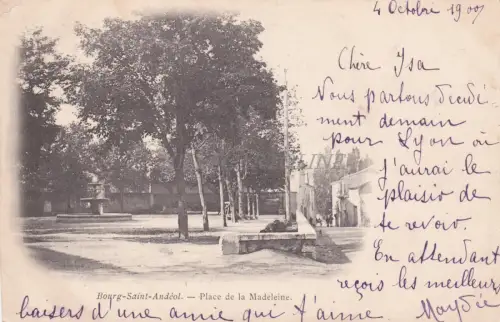 4 Octobre 190
Chère Isa
Nous partons décidé
ment demain
pour Lyon où
j'aurai le
plaisir de
te revoir.
En attendant
reçois les meilleurs
baisers d'une amie qui t'aime
Bourg-Saint-Andéol. — Place de la Madeleine.